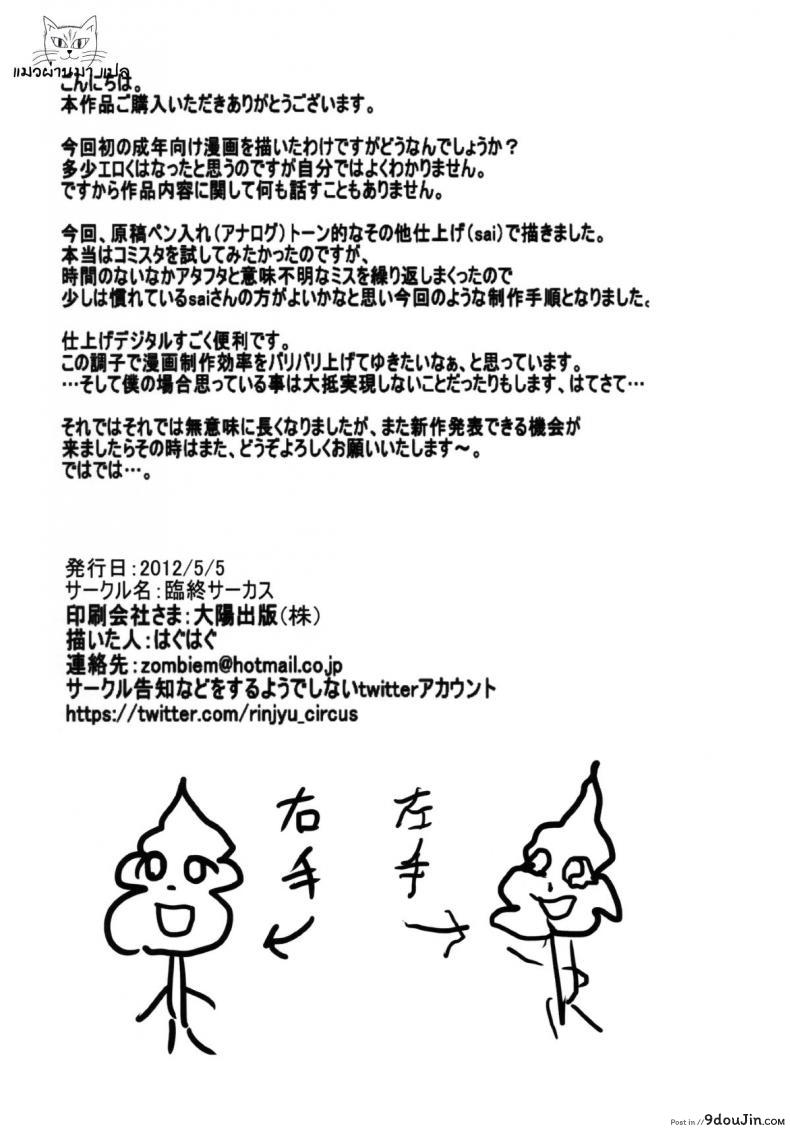 แมวผ่านมาแปล
こんにちは。
本作品ご購入いただきありがとうございます。
今回初の成年向け漫画を描いたわけですがどうなんでしょうか？
多少エロくはなったと思うのですが自分ではよくわかりません。
ですから作品内容に関して何も話すこともありません。
今回、原稿ペン入れ（アナログ）トーン的なその他仕上げ（sai）で描きました。
本当はコミスタを試してみたかったのですが、
時間のないなかアタフタと意味不明なミスを繰り返しまくったので
少しは慣れているsaiさんの方がよいかなと思い今回のような制作手順となりました。
仕上げデジタルすごく便利です。
この調子で漫画制作効率をバリバリ上げてゆきたいなぁ、と思っています。
…そして僕の場合思っている事は大抵実現しないことだったりもします、はてさて…
それではそれでは無意味に長くなりましたが、また新作発表できる機会が
来ましたらその時はまた、どうぞよろしくお願いいたします～。
ではでは…。
発行日：2012/5/5
サークル名：臨終サーカス
印刷会社さま：大陽出版（株）
描いた人：はぐはぐ
連絡先：zombiem@hotmail.co.jp
サークル告知などをするようでしないtwitterアカウント
https://twitter.com/rinjyu_circus
右手
左手
Post in // 9douJin.com